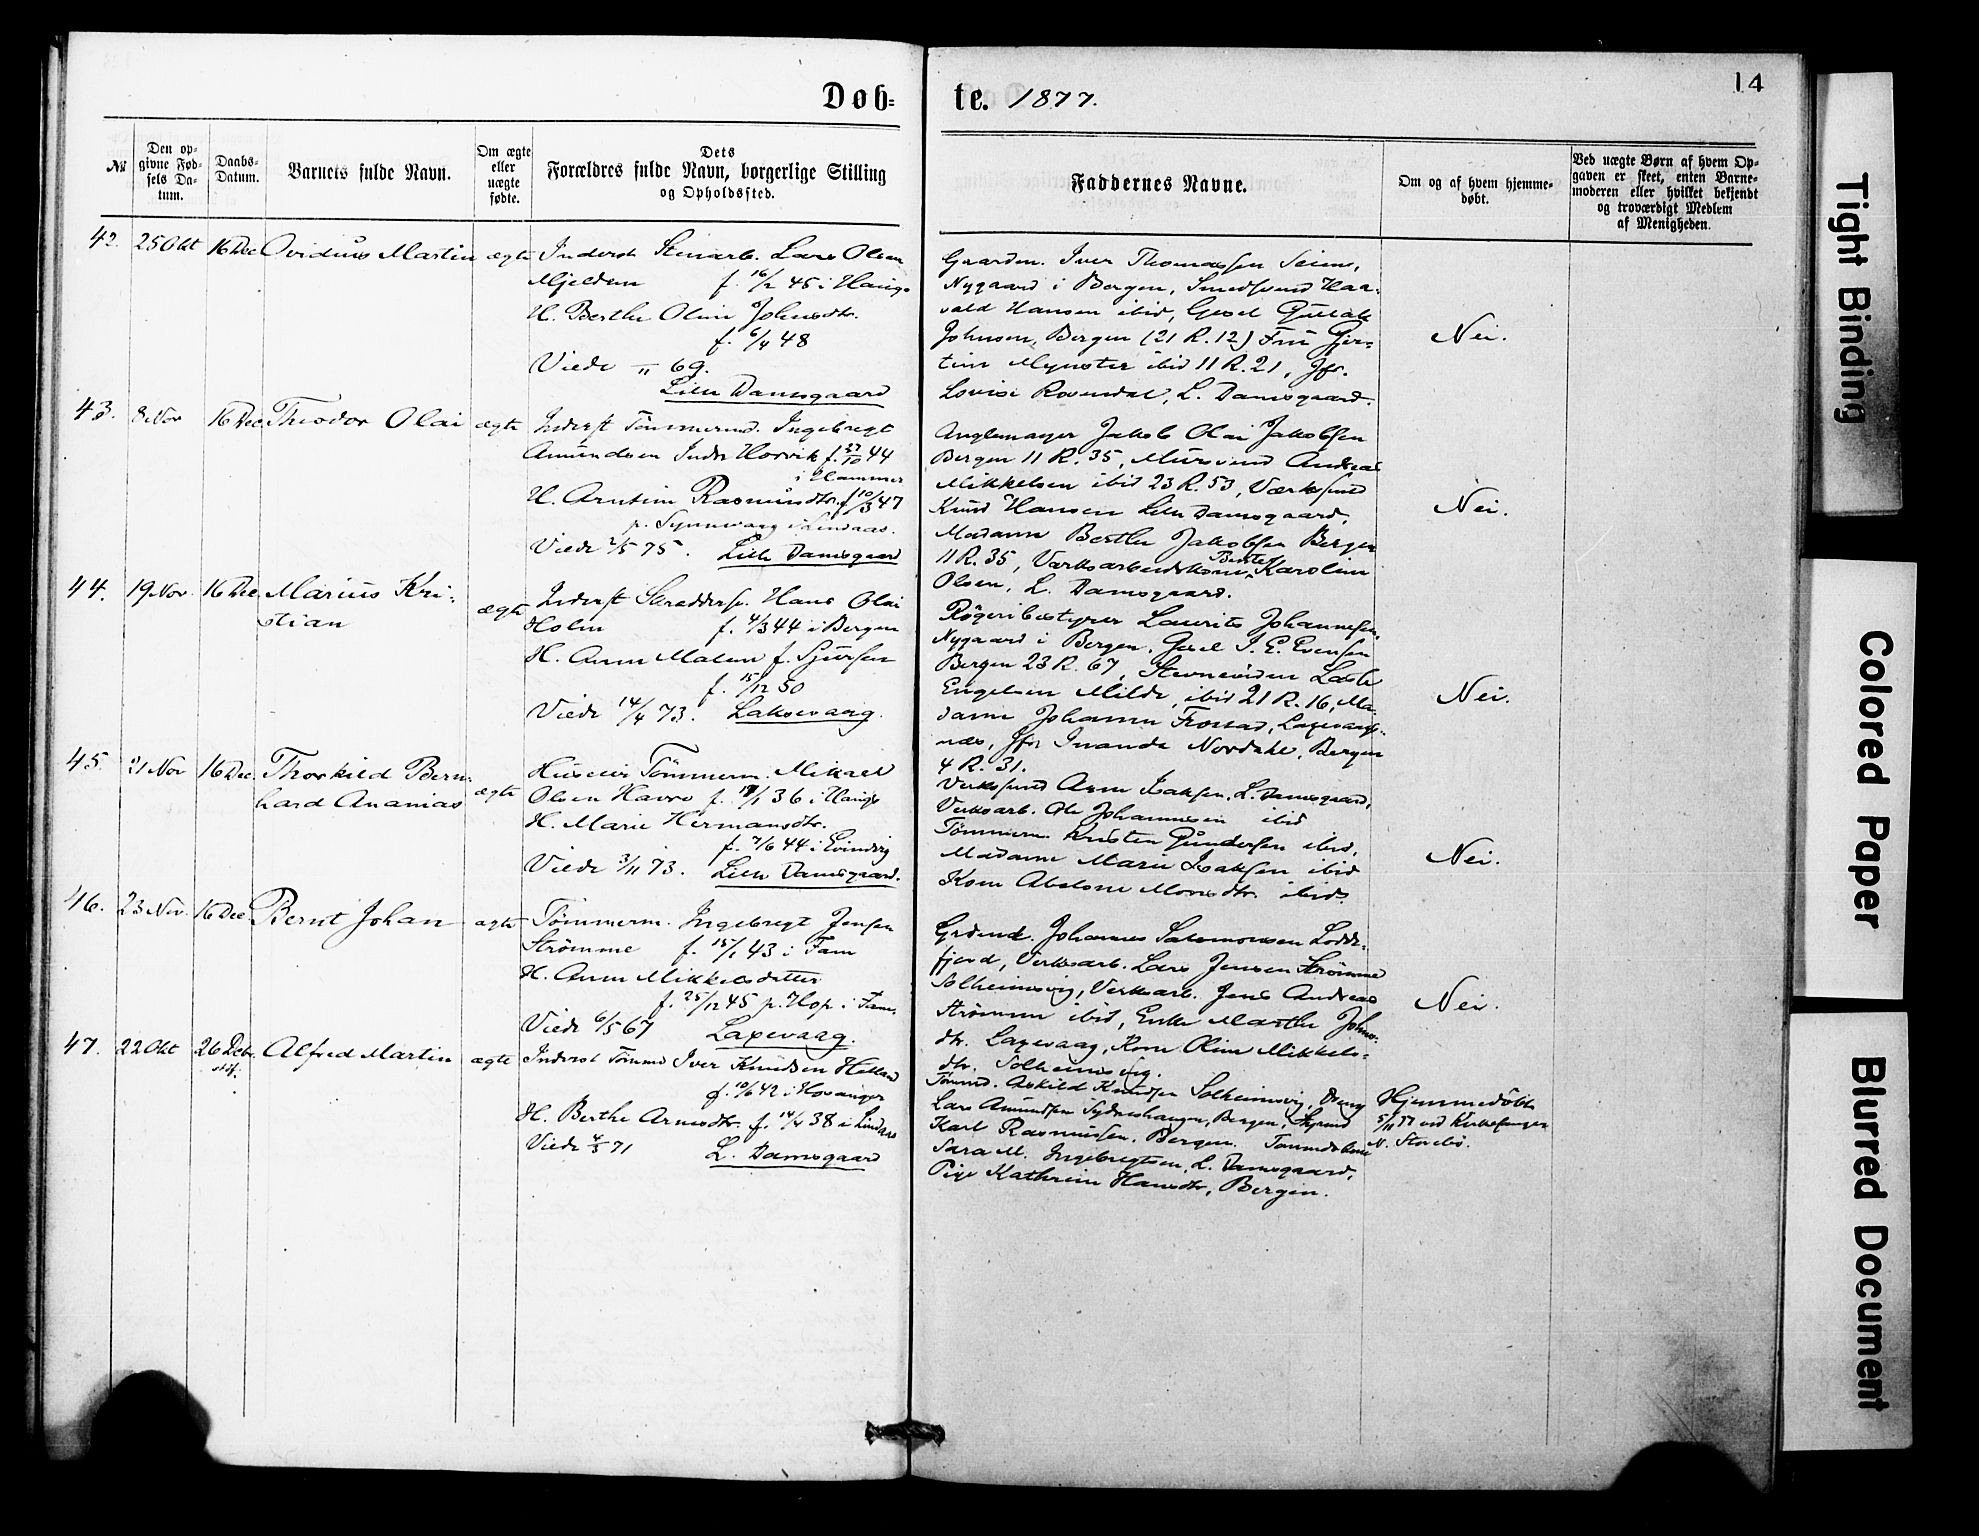 Døb=
te. 1877.
14
№
Den op-
givne Fød-
sels Da-
tum.
Daabs-
Datum.
Barnets fulde Navn.
Om ægte
eller
uægte
fødte.
Dets
Forældres fulde Navn, borgerlige Stilling
og Opholdssted.
Faddernes Navne.
Om og af hvem hjemme-
døbt.
Ved uægte Børn af hvem Op-
gaven er skeet, enten Barne-
moderen eller hvilket bekjendt
og troværdigt Medlem
af Menigheden.
42. 25 Okt 16 Dec Ovidius Martin ægte
Inderst Stenarb. Lars Olsen
Mjeldem f. 16/2 45 i Haug
H. Berthe Oline Johnsdtr.
f. 6/4 48
Viede " 69.
Lille Damsgaard
Gaarden. Iver Thomassen Seim,
Nygaard i Bergen, Smedsvend Haa-
vald Hansen ibid, Gesel Gullak
Johnsen, Bergen (21 R. 12) Fru Gjer-
tine Mynster ibid 11 R. 21, Jfr.
Lovise Rosendal, L. Damsgaard.
Nei.
43. 8 Nov 16 Dec Theodor Olai ægte
Inderst Tømmermd. Ingebrigt
Amundsen Indre Hosvik f. 27/10 44
i Hammer
H. Arntine Rasmusdtr. f 10/3 47
p. Synnevaag i Lindaas.
Viede 2/5 75. Lille Damsgaard
Jakob Olai Jakobsen
Bergen 11 R. 35, Mursvend Andreas
Mikkelsen ibid 23 R. 53, Værksmed
Knud Hansen Lille Damsgaard,
Madame Berthe Jakobsen Bergen
11 R. 35, Værksarbeiderkone Berthe Karoline
Olsen, L. Damsgaard.
Nei.
44. 19 Nov 16 Dec. Marius Kri-
stian
ægte
Inderst Skraddersv. Hans Olai
Holm f. 4/3 44 i Bergen
H. Anne Malene f. Sjursen
f. 15/12 50
Viede 14/4 73. Laksevaag.
Røgeribestyrer Laurits Johannesen,
Nygaard i Bergen, Gesel I. E. Evensen
Bergen 23 R. 67, Stevnevidne Lasse
Engelsen Milde, ibid 21 R. 16, Ma-
dame Johanne Frostad, Laxevaags-
næs, Jfr Inanda Nordahl, Bergen
4 R. 31.
Nei.
45. 21 Nov 16 Dec. Thorkild Bern-
hard Ananias
ægte
Huseier Tømmerm. Mikael
Olsen Havre f. 1/1 36 i Haug
H. Marie Hermansdtr.
f. 7/6 44 i Evindvig
Viede 3/11 73. Lille Damsgaard.
Verksmd Isaksen, L. Damsgaard,
Verksarb. Ole Johannesen ibid
Tømmerm. Kristen Gundersen ibid,
Madame Marie Isaksen ibid
Kone Abelone Monsdtr. ibid.
Nei.
46. 23 Nov. 16 Dec. Bernt Johan ægte
Tømmerm. Ingebrigt Jensen
Strømme f. 15/1 43 i Fane
H. Anne Mikkelsdatter
f. 25/12 45 p. Hop i Fane.
Viede 6/5 67 Laxevaag.
Grdmd. Johannes Salomonsen Lodde-
fjord, Verksarb. Lars Jensen Strømme
Solheimsvig, Verksarb. Jens Andreas
Strømme ibid, Enke Marthe Johns-
dtr. Laxevaag, Kone Oline Mikkels-
dtr. Solheimsvig.
Nei.
47. 22 Okt 26 Decbr. Alfred Martin ægte
stif.
Inderst Tømmd Iver Knudsen Helland
f. 10/6 42 i Hosanger
H. Berthe Arnesdtr. f. 14/4 38 i Lindaas
Viede 4/5 71 L. Damsgaard
Tømmd. Askild Knudsen Solheimsvig, Dreng
Lars Amundsen Sydneshaugen, Bergen, Styrmd
Karl Rasmussen, Bergen. Tømmdskone
Sara M. Ingebrigtsen, L. Damsgaard,
Pige Kathrine Hansdtr, Bergen.
Hjemmedøbt
5/11 77 ved Kirkesanger
N. Storebø.
Tight Binding
Colored Paper
Blurred Document